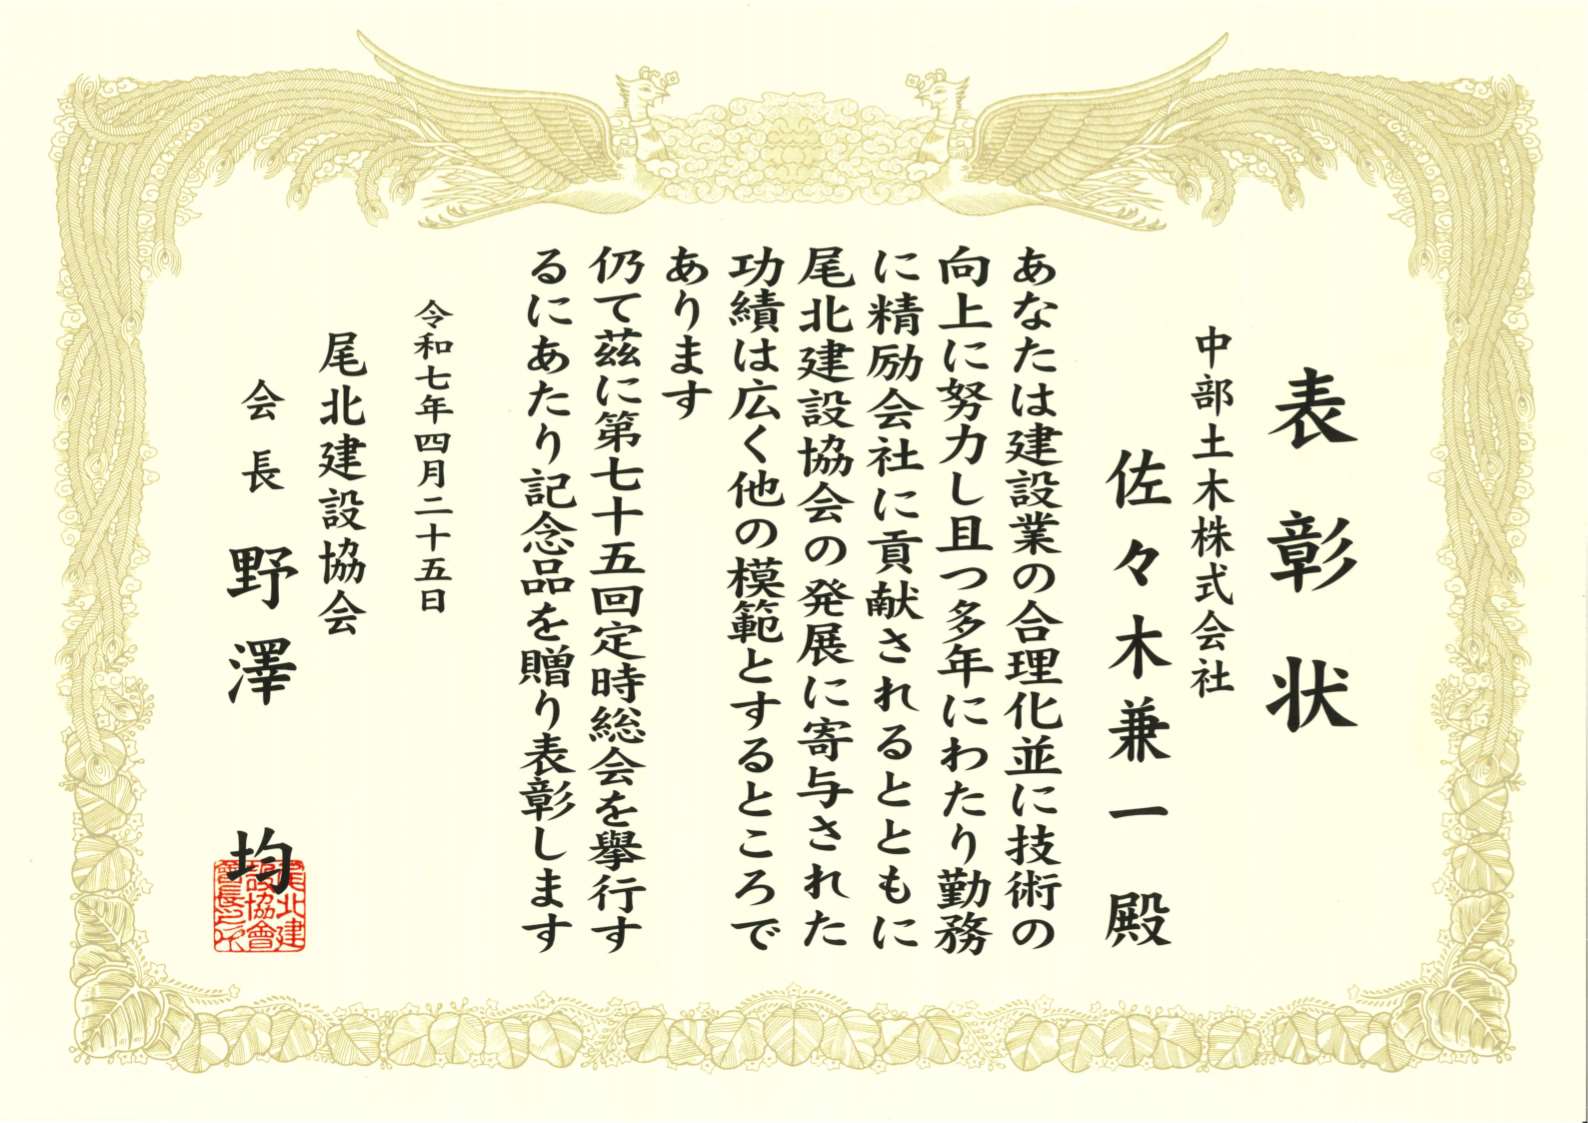 表彰状
中部土木株式会社
佐々木兼一 殿
あなたは建設業の合理化並に技術の
向上に努力し且つ多年にわたり勤務
に精励会社に貢献されるとともに
尾北建設協会の発展に寄与された
功績は広く他の模範とするところで
あります
仍て茲に第七十五回定時総会を擧行す
るにあたり記念品を贈り表彰します
令和七年四月二十五日
尾北建設協会
会長 野澤 均
尾北建
設協會
會長之印